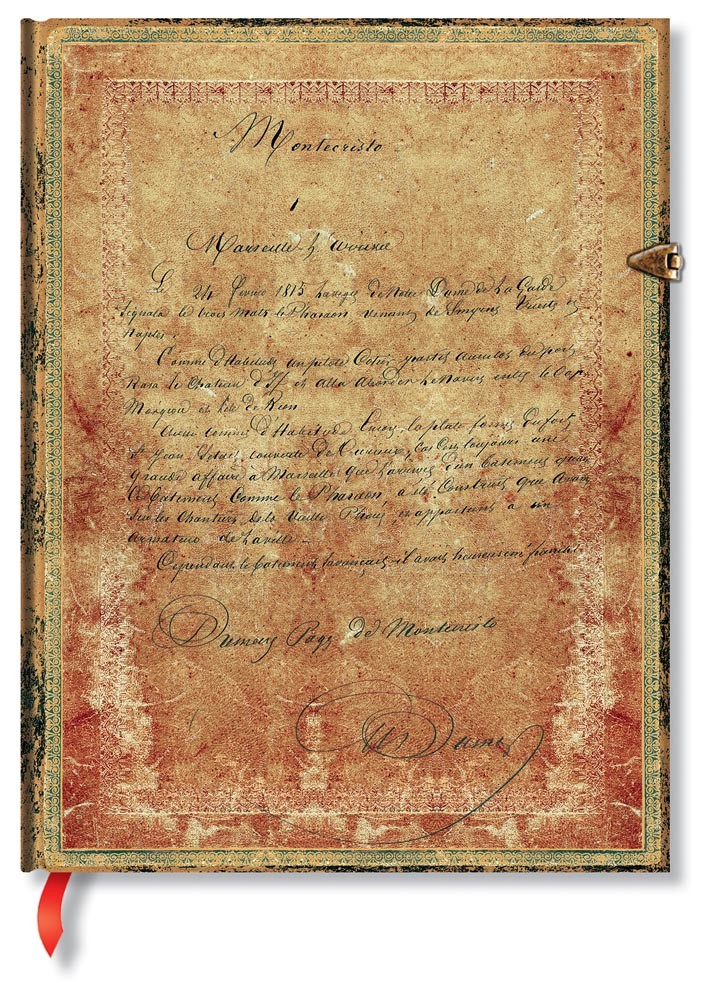 Montecristo
1
Marseille L'arrivée
Le 24 février 1815 la vigie de Notre Dame de la Garde
signala le trois mats le Pharaon venant de Smyrne Trieste et
Naples.
Comme d'Habitude un pilote Cotier partit aussitot du port
Rasa le Chateau d'If et alla aborder le Navire entre le Cap
Morgiou et l'ile de Rion
Aussi comme d'Habitude la plate forme du fort
St Jean s'était couverte de Curieux, Car C'est toujours une
grande affaire à Marseille que l'arrivée d'un batiment quand
Ce batiment Comme le Pharaon, a été Construit
sur les Chantiers de la Vieille Phocée, et appartient a un
armateur de la ville
Cependant le batiment avançait il avait heureusement franchi
Dumas de Montecristo
Dumas